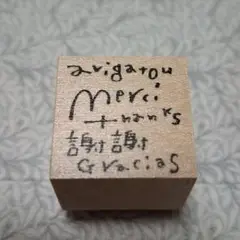 arigatou
Merci
thanks
謝謝
Gracias